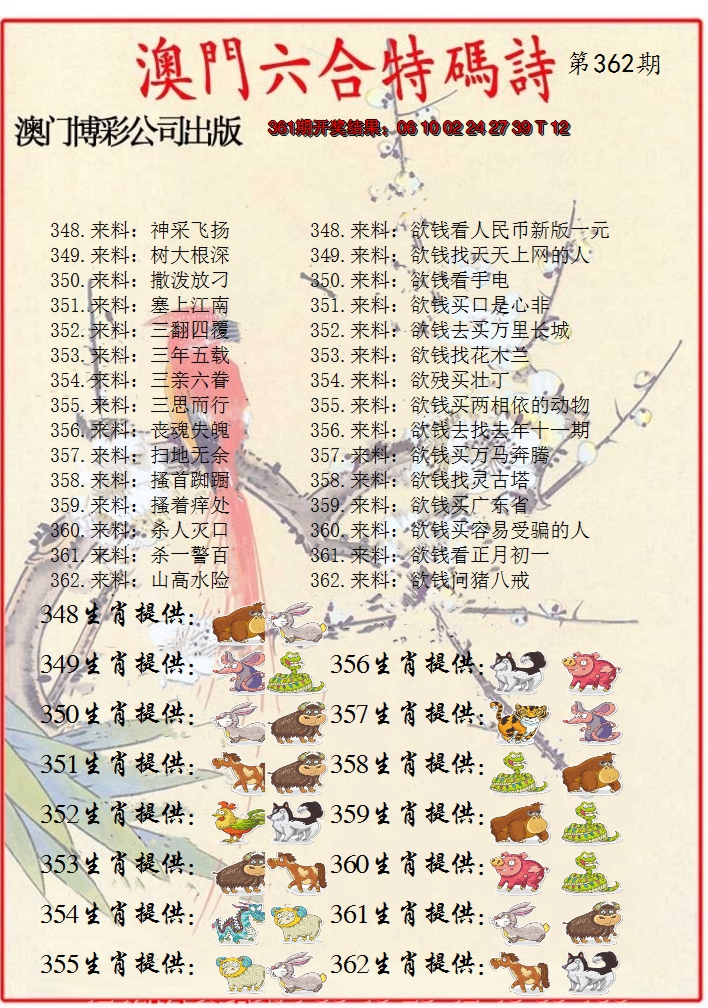 澳門六合特碼詩 第362期
澳门博彩公司出版 361期开奖结果：06 10 02 24 27 39 T 12
348.来料：神采飞扬 348.来料：欲钱看人民币新版一元
349.来料：树大根深 349.来料：欲钱找天天上网的人
350.来料：撒泼放刁 350.来料：欲钱看手电
351.来料：塞上江南 351.来料：欲钱买口是心非
352.来料：三翻四覆 352.来料：欲钱去买万里长城
353.来料：三年五载 353.来料：欲钱找花木兰
354.来料：三亲六眷 354.来料：欲残买壮丁
355.来料：三思而行 355.来料：欲钱买两相依的动物
356.来料：丧魂失魄 356.来料：欲钱去找去年十一期
357.来料：扫地无余 357.来料：欲钱买万马奔腾
358.来料：搔首踟蹰 358.来料：欲钱找灵古塔
359.来料：搔着痒处 359.来料：欲钱买广东省
360.来料：杀人灭口 360.来料：欲钱买容易受骗的人
361.来料：杀一警百 361.来料：欲钱看正月初一
362.来料：山高水险 362.来料：欲钱问猪八戒
348生肖提供：
349生肖提供： 356生肖提供：
350生肖提供： 357生肖提供：
351生肖提供： 358生肖提供：
352生肖提供： 359生肖提供：
353生肖提供： 360生肖提供：
354生肖提供： 361生肖提供：
355生肖提供： 362生肖提供：